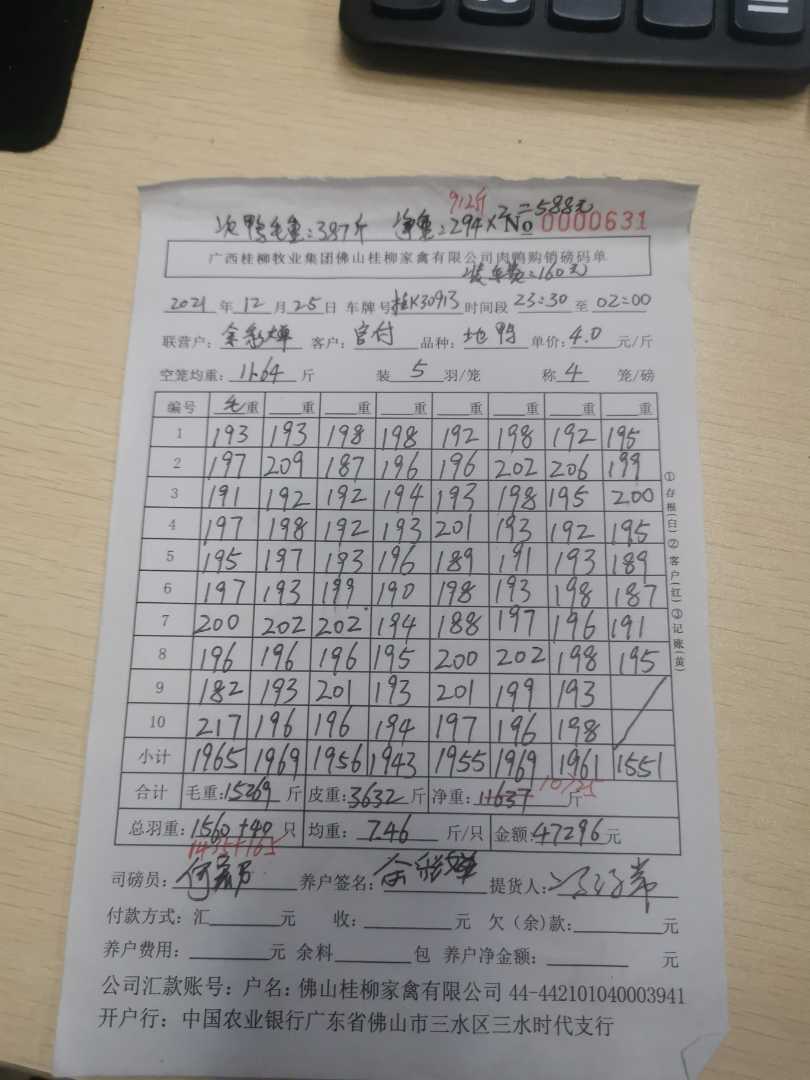 912斤
次鸭毛重:387斤 净重:294×2=588元
№ 0000631
广西桂柳牧业集团佛山桂柳家禽有限公司肉鸭购销磅码单
装车费:160元
2021年12月25日 车牌号 桂K30913 时间段 23:30 至 02:00
联营户: 客户:宫付 品种:地鸭 单价:4.0 元/斤
空笼均重:11.64 斤 装 5 羽/笼 称 4 笼/磅
编号 毛重 重 重 重 重 重 重 重
1 193 193 198 198 192 198 192 195
2 197 209 187 196 196 202 206 199
3 191 192 192 194 193 198 195 200
4 197 198 192 193 201 193 192 195
5 195 197 193 196 189 191 193 189
6 197 193 199 190 198 193 198 187
7 200 202 202 194 188 197 196 191
8 196 196 196 195 200 202 198 195
9 182 193 201 193 201 199 193
10 217 196 196 194 197 196 198
小计 1965 1969 1956 1943 1955 1969 1961 1551
10725
合计 毛重:15269 斤 皮重:3632 斤 净重:11637 斤
总羽重:1560+40 只 均重: 7.46 斤/只 金额:47296元
1435+165
司磅员: 养户签名: 提货人:
付款方式:汇 元 收: 元 欠(余)款: 元
养户费用: 元 余料 包 养户净金额: 元
公司汇款账号:户名:佛山桂柳家禽有限公司 44-442101040003941
开户行:中国农业银行广东省佛山市三水区三水时代支行
①存根(白)②客户(红)③记账(黄)